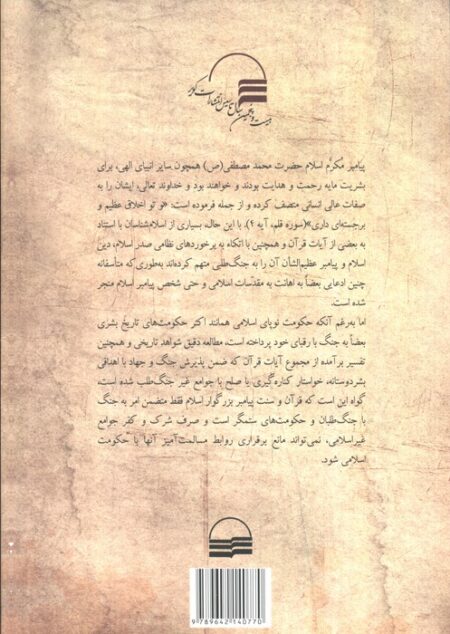 بیست و پنجمین سال تاسیس انتشارات کویر
پیامبر مکرّم اسلام حضرت محمد مصطفی(ص) همچون سایر انبیای الهی، برای
بشریت مایه رحمت و هدایت بودند و خواهند بود و خداوند تعالی، ایشان را به
صفات عالی انسانی متصف کرده و از جمله فرموده است: «و تو اخلاق عظیم و
برجسته‌ای داری»(سوره قلم، آیه ۴). با این حال، بسیاری از اسلام‌شناسان با استناد
به بعضی از آیات قرآن و همچنین با اتکاء به برخوردهای نظامی صدر اسلام، دین
اسلام و پیامبر عظیم‌الشأن آن را به جنگ‌طلبی متهم کرده‌اند به‌طوری‌که متأسفانه
چنین ادعایی بعضاً به اهانت به مقدسات اسلامی و حتی شخص پیامبر اسلام منجر
شده است.
اما به‌رغم آنکه حکومت نوپای اسلامی همانند اکثر حکومت‌های تاریخ بشری
بعضاً به جنگ با رقبای خود پرداخته است، مطالعه دقیق شواهد تاریخی و همچنین
تفسیر برآمده از مجموع آیات قرآن که ضمن پذیرش جنگ و جهاد با اهدافی
بشردوستانه، خواستار کناره‌گیری یا صلح با جوامع غیر جنگ‌طلب شده است،
گواه این است که قرآن و سنت پیامبر بزرگوار اسلام فقط متضمن امر به جنگ
با جنگ‌طلبان و حکومت‌های ستمگر است و صرف شرک و کفر جوامع
غیراسلامی، نمی‌تواند مانع برقراری روابط مسالمت‌آمیز آنها با حکومت
اسلامی شود.
9 789642 140770